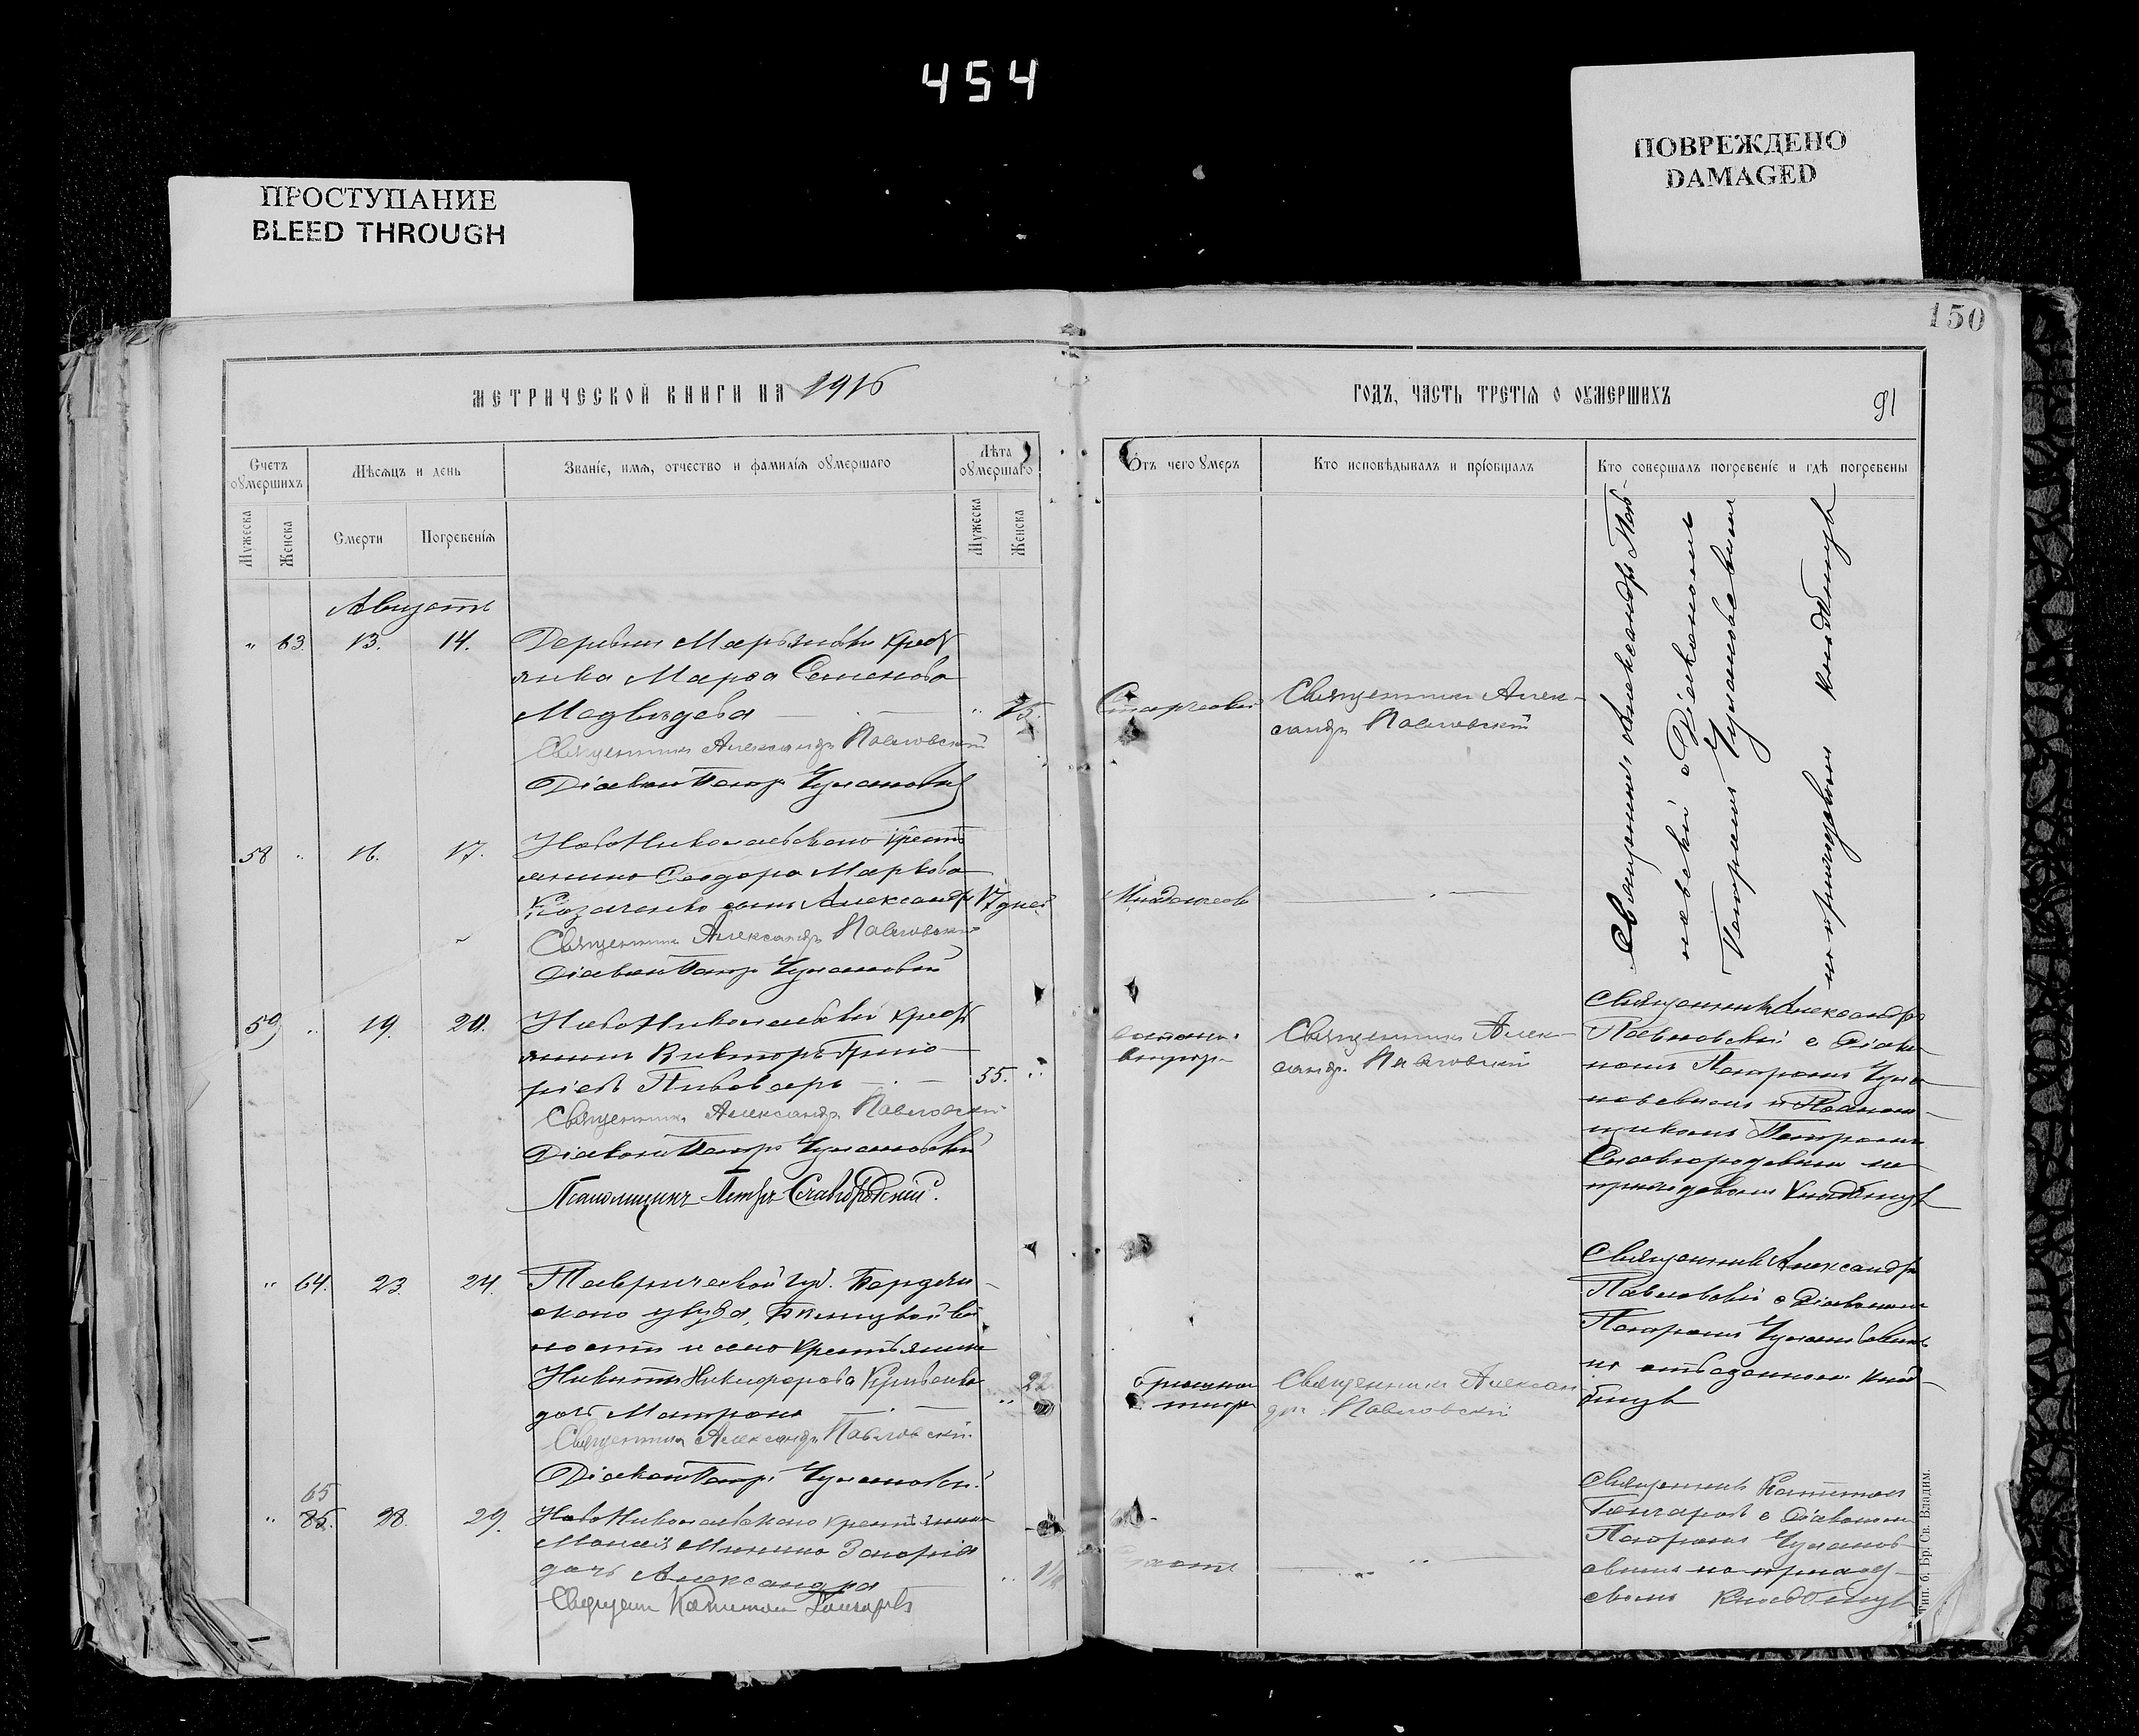 454
ПОВРЕЖДЕНО
DAMAGED
ПРОСТУПАНИЕ
BLEED THROUGH
150
МЕТРИЧЕСКОЙ КНИГИ НА 1916
ГОДЪ, ЧАСТЬ ТРЕТІЯ О ОУМЕРШИХЪ
91
Счетъ оумершихъ
Мѣсяцъ и день
Званіе, имя, отчество и фамилія оумершаго
Лѣта оумершаго
Мужеска
Женска
Смерти
Погребенія
Мужеска
Женска
Отъ чего умеръ
Кто исповѣдывалъ и пріобщалъ
Кто совершалъ погребеніе и гдѣ погребены
Августъ
" 63. 13. 14.
Деревни Марьяновки крест
янка Марѳа Семенова
Медвѣдева " 75.
Священникъ Александръ Павловскій
Діаконъ Петръ Чумановскій
Старости
Священникъ Алек-
сандръ Павловскій
Священникъ Александръ Пав-
ловскій с Діакономъ
Петромъ Чумановскимъ
на приходскомъ кладбищѣ
58 " 16. 17.
Ново Николаевскаго крестъ
янина Ѳеодора Маркова
Козаченко сынъ Александръ 17 дней
Священникъ Александръ Павловскій
Діаконъ Петръ Чумановскій
59 " 19. 20.
Ново Николаевскій крест
янинъ Викторъ Григо
ріевъ Пивоваръ 55. "
Священникъ Александръ Павловскій
Діаконъ Петръ Чумановскій
Псаломщикъ Петръ Славгородскій.
Священникъ Алек-
сандръ Павловскій
Священникъ Александръ
Павловскій с Діако
номъ Петромъ Чума
новскимъ и Псалом-
щикомъ Петромъ
Славгородскимъ на
приходскомъ кладбищѣ
" 64. 23. 24.
Таврической губ. Бердян-
скаго уѣзда, во
лости и села крестьянина
Никиты Никифорова Кривенко
дочь Матрона " 22
Священникъ Александръ Павловскій.
Діаконъ Петръ Чумановскій
брюшной
тифъ
Священникъ Алексан
дръ Павловскій
Священникъ Александръ
Павловскій с Діакономъ
Петромъ Чумановскимъ
на отведенномъ клад-
бищѣ
65
" 85. 28. 29.
Ново Николаевскаго крестьянина
Моисея Минина
дочь Александра
Священ Капитонъ Гончаровъ
Священникъ Капитонъ
Гончаровъ с Діакономъ
Петромъ Чуманов-
скимъ на приход-
скомъ кладбищѣ
Тип. б. Бр. Св. Владим.